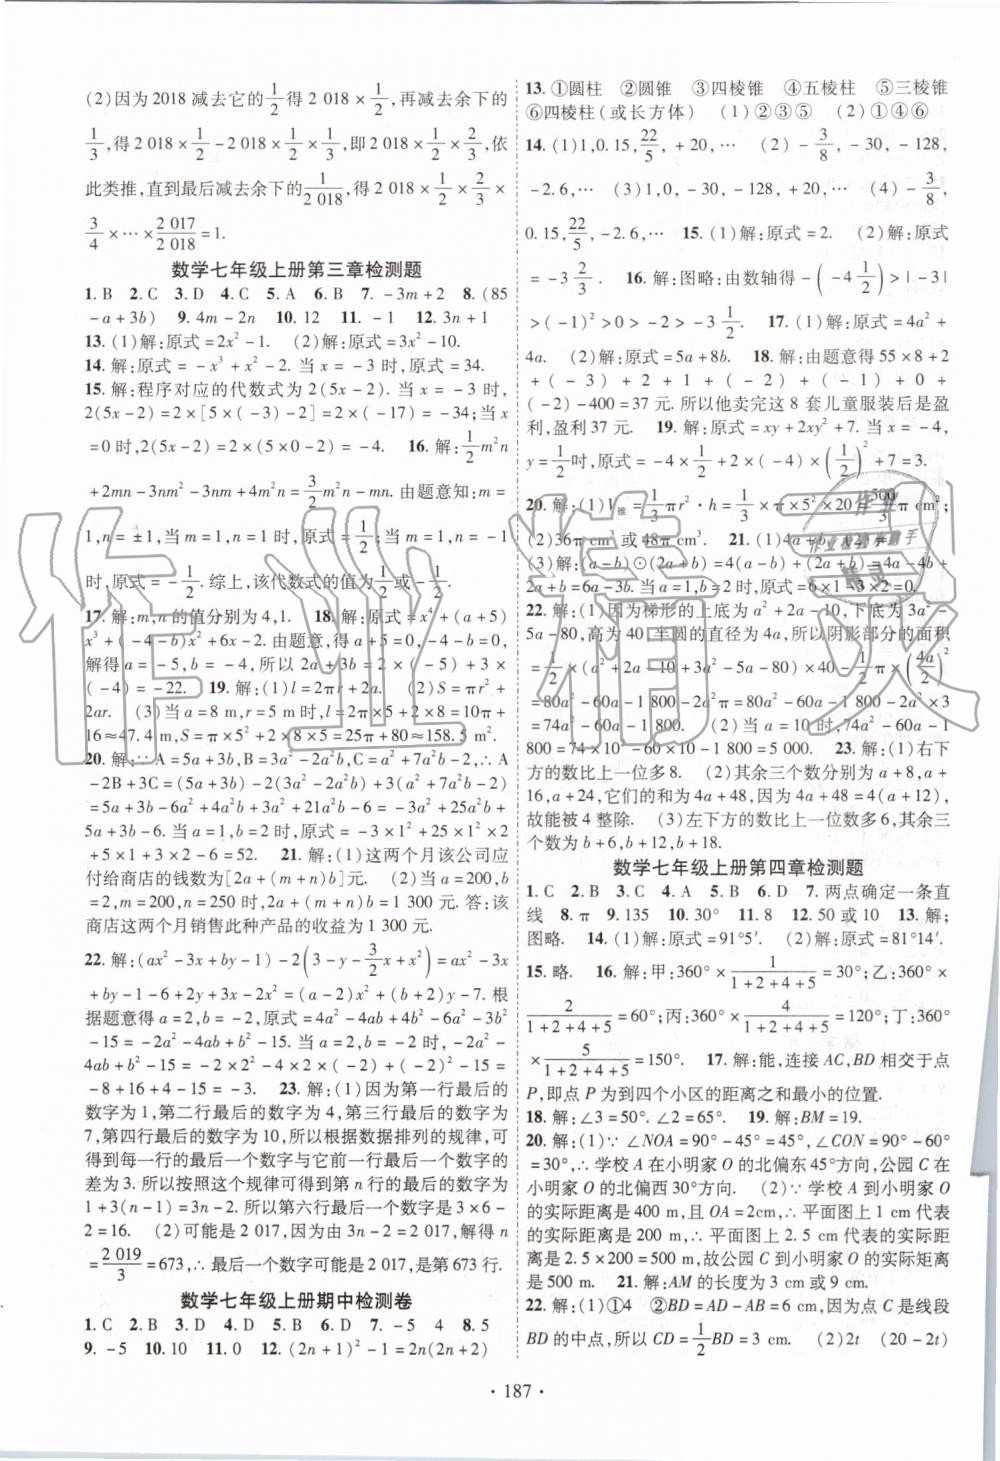 (2)因为2018减去它的1/2得2 018×1/2,再减去余下的
1/3,得2 018×1/2-2 018×1/2×1/3,即2 018×1/2×2/3,依
此类推,直到最后减去余下的1/2 018,得2 018×1/2×2/3×
3/4×…×2 017/2 018=1.
数学七年级上册第三章检测题
1. B 2. C 3. D 4. C 5. A 6. B 7. -3m+2 8. (85
-a+3b) 9. 4m-2n 10. 12 11. -1 12. 3n+1
13. (1)解:原式=2x²-1. (2)解:原式=3x²-10.
14. 解:原式=-x³+x²-2. 当x=-3时,原式=34.
15. 解:程序对应的代数式为2(5x-2). 当x=-3时,
2(5x-2)=2×[5×(-3)-2]=2×(-17)=-34;当x
=0时,2(5x-2)=2×(5×0-2)=-4. 16. 解:1/2m²n
+2mn-3nm²-3nm+4m²n=3/2m²n-mn. 由题意知:m=
1,n=±1,当m=1,n=1时,原式=1/2;当m=1,n=-1
时,原式=-1/2. 综上,该代数式的值为1/2或-1/2.
17. 解:m,n的值分别为4,1. 18. 解:原式=x⁴+(a+5)
x³+(-4-b)x²+6x-2. 由题意,得a+5=0,-4-b=0,
解得a=-5,b=-4,所以2a+3b=2×(-5)+3×
(-4)=-22. 19. 解:(1)l=2πr+2a. (2)S=πr²+
2ar. (3)当a=8 m,r=5 m时,l=2π×5+2×8=10π+
16≈47.4 m,S=π×5²+2×8×5=25π+80≈158.5 m².
20. 解:∵A=5a+3b,B=3a²-2a²b,C=a²+7a²b-2,∴A
-2B+3C=(5a+3b)-2(3a²-2a²b)+3(a²+7a²b-2)
=5a+3b-6a²+4a²b+3a²+21a²b-6=-3a²+25a²b+
5a+3b-6. 当a=1,b=2时,原式=-3×1²+25×1²×2
+5×1+3×2-6=52. 21. 解:(1)这两个月该公司应
付给商店的钱数为[2a+(m+n)b]元. (2)当a=200,b
=2,m=200,n=250时,2a+(m+n)b=1 300元. 答:该
商店这两个月销售此种产品的收益为1 300元.
22. 解:(ax²-3x+by-1)-2(3-y-3/2x+x²)=ax²-3x
+by-1-6+2y+3x-2x²=(a-2)x²+(b+2)y-7. 根
据题意得a=2,b=-2,原式=4a²-4ab+4b²-6a²-3b²
-15=-2a²-4ab+b²-15. 当a=2,b=-2时,-2a²-
4ab+b²-15=-2×2²-4×2×(-2)+(-2)²-15=
-8+16+4-15=-3. 23. 解:(1)因为第一行最后的
数字为1,第二行最后的数字为4,第三行最后的数字为
7,第四行最后的数字为10,所以根据数据排列的规律,可
得到每一行的最后一个数字与它前一行最后一个数字的
差为3. 所以按照这个规律可得到第n行的最后一个数字是
1+3(n-1)=3n-2. 所以第六行最后一个数字是3×6-
2=16. (2)可能是2 017,因为由3n-2=2 017,解得n
=2 019/3=673,∴最后一个数字可能是2 017,是第673行.
数学七年级上册期中检测卷
1. C 2. B 3. D 4. D 5. B 6. D 7. -5 4 8. 5
9. -5 10. 10 11. 0 12. (2n+1)²-1=2n(2n+2)
13. ①圆柱 ②圆锥 ③四棱锥 ④五棱柱 ⑤三棱锥
⑥四棱柱(或长方体) (1)②③⑤ (2)①④⑥
14. (1)1,0.15,22/5,+20,… (2)-3/8,-30,-128,
-2.6,… (3)1,0,-30,-128,+20,… (4)-3/8,
0.15,22/5,-2.6,… 15. (1)解:原式=2. (2)解:原式
=-3 2/3. 16. 解:图略:由数轴得-(-4 1/2)>|-3|
>(-1)²>0>-2>-3 1/2. 17. (1)解:原式=4a²+
4a. (2)解:原式=5a+8b. 18. 解:由题意得55×8+2
+(-3)+2+1+(-2)+(-1)+0+
(-2)-400=37元. 所以他卖完这8套儿童服装后是盈
利,盈利37元. 19. 解:原式=xy+2xy²+7. 当x=-4,
y=1/2时,原式=-4×1/2+2×(-4)×(1/2)²+7=3.
20. 解:(1)V锥=1/3πr²·h=1/3×π×5²×20=500/3π cm³;
(2)36π cm³或48π cm³. 21. (1)4a+b
(3)解:(a-b)⊙(2a+b)=4(a-b)+(2a+b)=4a-4b+
2a+b=6a-3b. 当a=1,b=2时,原式=6×1-3×2=0.
22. 解:(1)因为梯形的上底为a²+2a-10,下底为3a²-
5a-80,高为40,半圆的直径为4a,所以阴影部分的面积
=1/2×(a²+2a-10+3a²-5a-80)×40-1/2π×(4a/2)²
=80a²-60a-1 800-2πa²=80a²-60a-1 800-2a²×3
=74a²-60a-1 800. (2)当a=10时,74a²-60a-1
800=74×10²-60×10-1 800=5 000. 23. 解:(1)右下
方的数比上一位多8. (2)其余三个数分别为a+8,a+
16,a+24,它们的和为4a+48,因为4a+48=4(a+12),
故能被4整除. (3)左下方的数比上一位数多6,其余三
个数为b+6,b+12,b+18.
数学七年级上册第四章检测题
1. C 2. B 3. C 4. A 5. B 6. D 7. 两点确定一条直
线 8. π 9. 135 10. 30° 11. 8 12. 50或10 13. 解:
图略. 14. (1)解:原式=91°5′. (2)解:原式=81°14′.
15. 略. 16. 解:甲:360°×1/(1+2+4+5)=30°;乙:360°×
2/(1+2+4+5)=60°;丙:360°×4/(1+2+4+5)=120°;丁:360°
×5/(1+2+4+5)=150°. 17. 解:能,连接AC,BD相交于点
P,即点P为到四个小区的距离之和最小的位置.
18. 解:∠3=50°. ∠2=65°. 19. 解:BM=19.
20. 解:(1)∵∠NOA=90°-45°=45°,∠CON=90°-60°
=30°,∴学校A在小明家O的北偏东45°方向,公园C在
小明家O的北偏西30°方向. (2)∵学校A到小明家O
的实际距离是400 m,且OA=2cm,∴平面图上1 cm代表
的实际距离是200 m,∴平面图上2.5 cm代表的实际距
离是2.5×200=500 m,故公园C到小明家O的实际距离
是500 m. 21. 解:AM的长度为3 cm或9 cm.
22. 解:(1)①4 ②BD=AD-AB=6 cm,因为点C是线段
BD的中点,所以CD=1/2BD=3 cm. (2)2t (20-2t)
· 187 ·
作业精灵